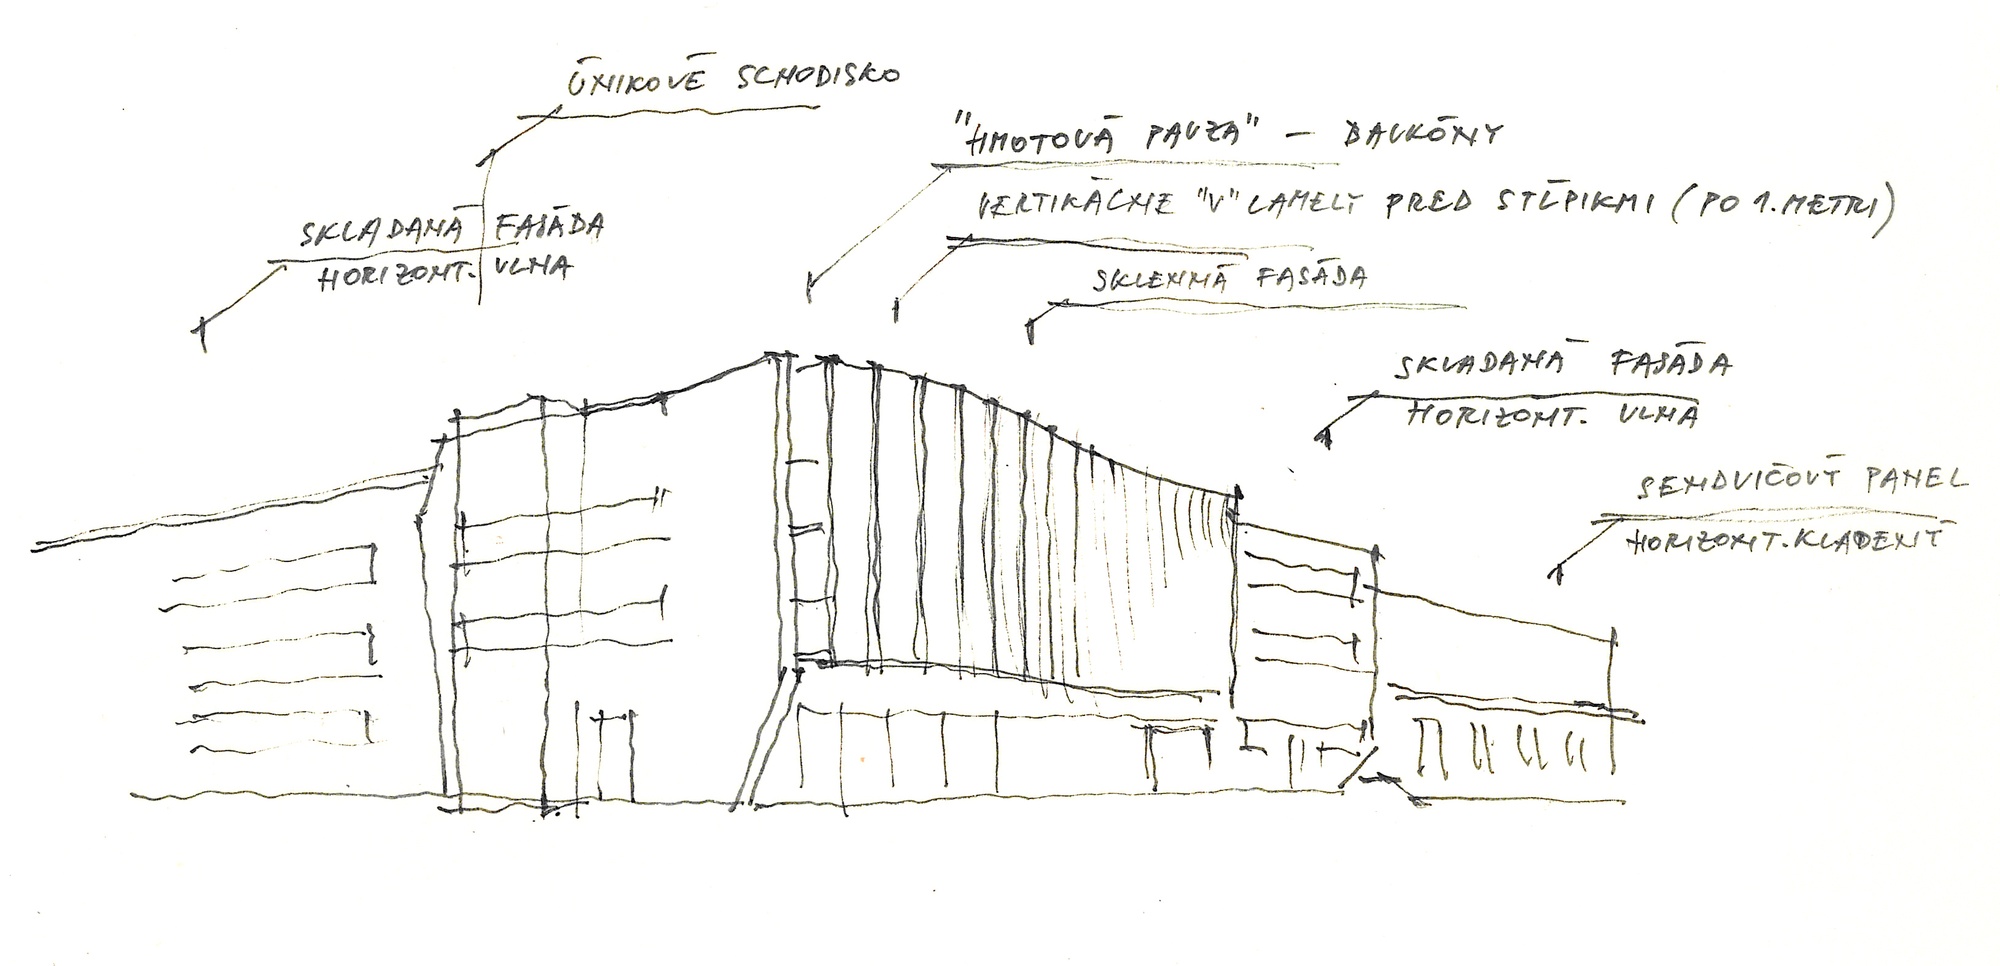 ÚNIKOVÉ SCHODISKO
SKLADANÁ FASÁDA
HORIZONT. VLNA
"HMOTOVÁ PAUZA" – BALKÓNY
VERTIKÁLNE "V" LAMELY PRED STĹPIKMI (PO 1. METRI)
SKLENNÁ FASÁDA
SKLADANÁ FASÁDA
HORIZONT. VLNA
SENDVIČOVÝ PANEL
HORIZONT. KLADENÝ